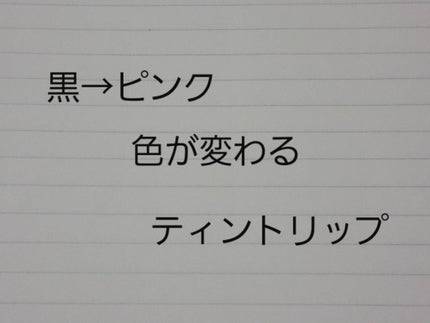 黒→ピンク
色が変わる
ティントリップ